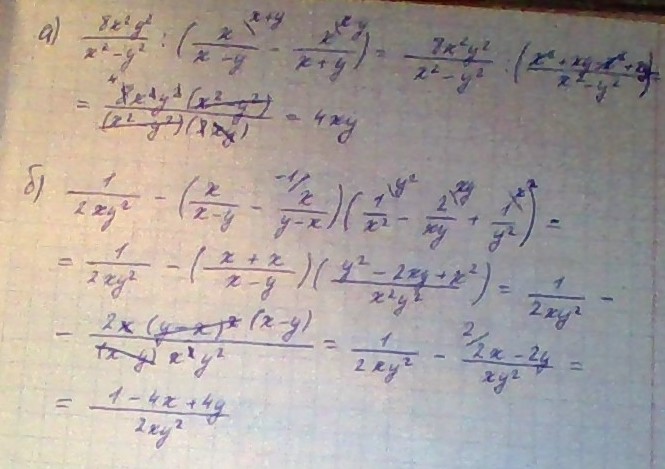 а) 8x²y²/(x²-y²) : (x/(x-y) \x+y - x/(x+y) \x-y) = 8x²y²/(x²-y²) : ((x²+xy-x²+xy)/(x²-y²)) =
= 8x²y²(x²-y²)/((x²-y²)(2xy)) = 4xy
б) 1/(2xy²) - (x/(x-y) - -1/ x/(y-x))(1/x² \y² - 2/xy \xy + 1/y² \x²) =
= 1/(2xy²) - ((x+x)/(x-y))((y²-2xy+x²)/(x²y²)) = 1/(2xy²) -
- 2x(y-x)²(x-y)/((x-y)x²y²) = 1/(2xy²) - 2/ (2x-2y)/(xy²) =
= (1-4x+4y)/(2xy²)